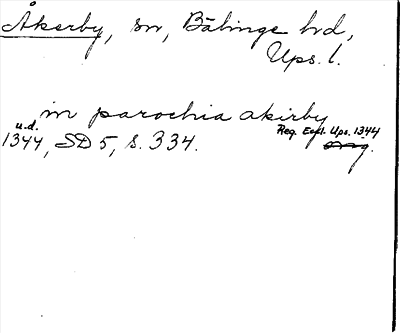 Åkerby, sn, Bälinge hd,
Ups. l.
in parochia akirby
u.d. Reg. Eccl. Ups. 1344
1344, SD 5, s. 334. orig.